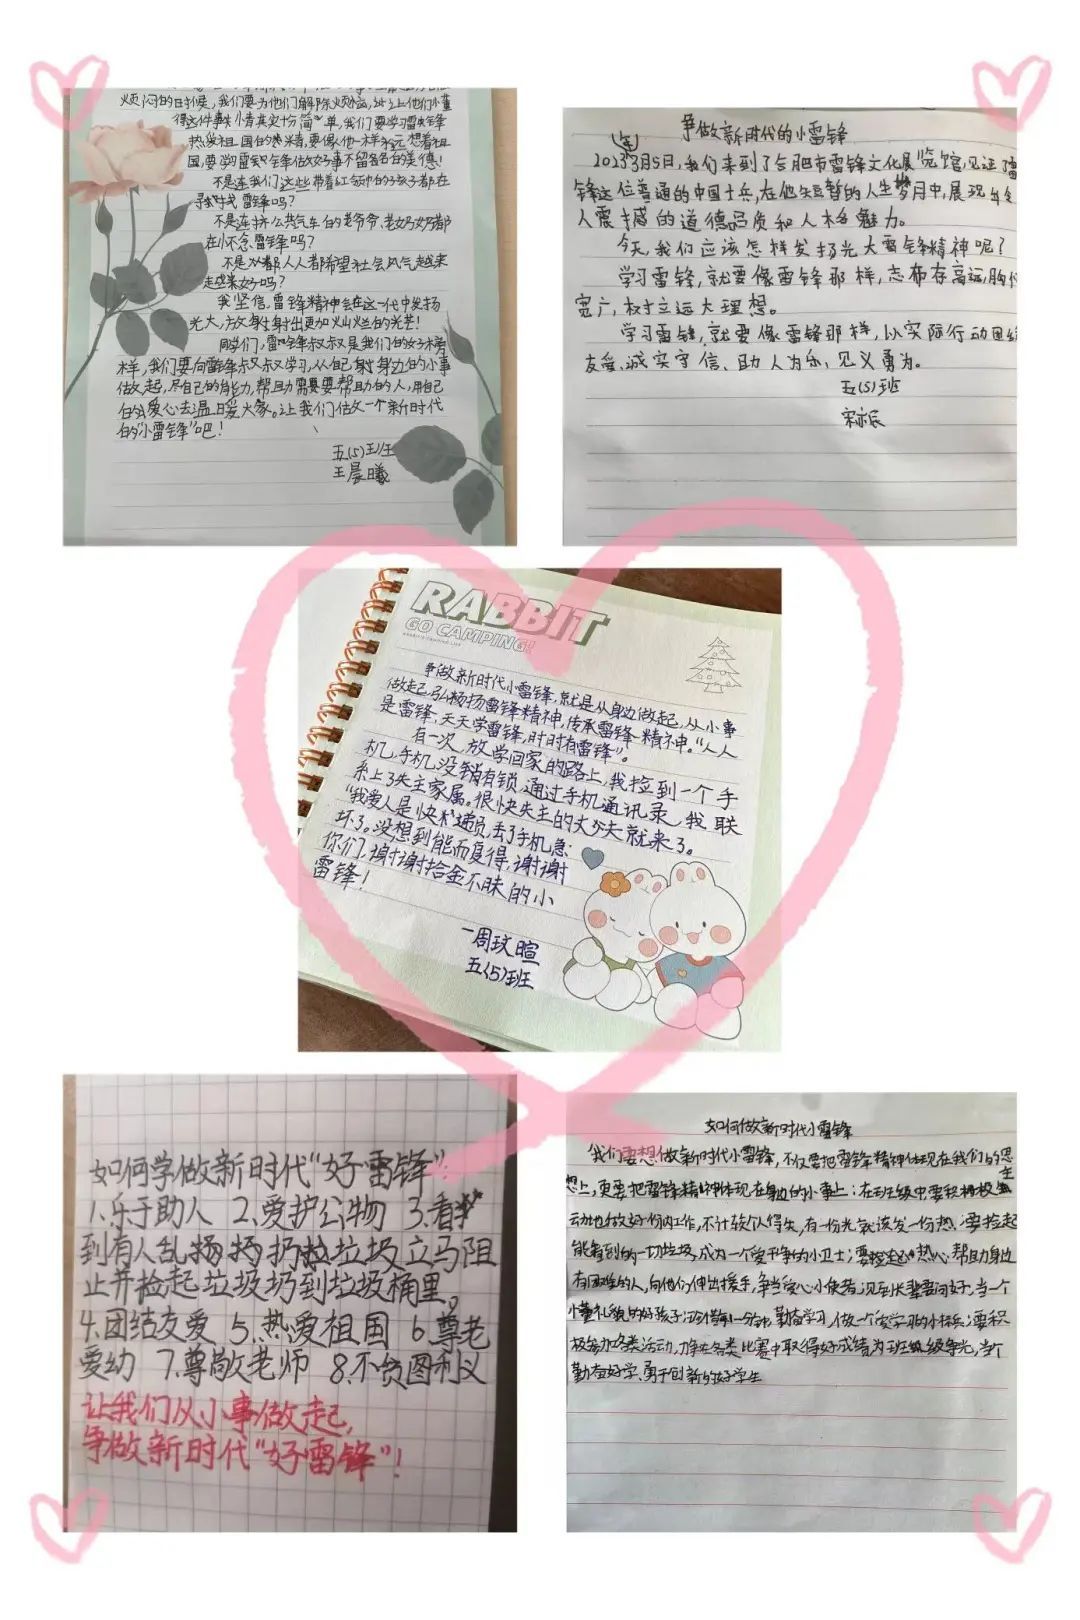 烦闷的时候，我们要为他们解除烦恼，
得这件事情其实十分简单，我们要学习雷锋
热爱祖国的 要像他一样永远想着祖
国，要学习雷锋做好事不留名的美德！
不是连我们这些带着红领巾的孩子都在
寻找雷锋吗？
不是连挤公共气车的老爷爷、老奶奶都
在怀念雷锋吗？
不是 人人都希望社会风气越来
越来好吗？
我坚信，雷锋精神会在这一代中发扬
光大，放射射出更加灿烂的光芒！
同学们，雷锋叔叔是我们的好榜
样，我们要向雷锋叔叔学习，从自己身边的小事
做起，尽自己的能力，帮助需要帮助的人，用自己
的爱心去温暖大家。让我们做一个新时代
的“小雷锋”吧！
五(5)班
王晨曦
争做新时代的小雷锋
年
2023 3月5日，我们来到了合肥市雷锋文化展览馆，见证了雷
锋这位普通的中国士兵，在他短暂的人生岁月中，展现
人震撼的道德品质和人格魅力。
今天，我们应该怎样发扬光大雷锋精神呢？
学习雷锋，就要像雷锋那样，志存高远，胸
宽广，树立远大理想。
学习雷锋，就要像雷锋那样，以实际行动团结
友爱、诚实守信、助人为乐、见义勇为。
五(5)班
宋亦辰
RABBIT
GO CAMPING!
争做新时代小雷锋，就是从身边做起，从小事
做起，弘扬扬雷锋精神，传承雷锋精神。“人人
是雷锋，天天学雷锋，时时有雷锋”。
有一次，放学回家的路上，我捡到一个手
机，手机没销有锁，通过手机通讯录，我联
系上了失主家属。很快失主的丈夫就来了。
“我爱人是快递员，丢了手机急
坏了。没想到能而复得，谢谢
你们，谢谢拾金不昧的小
雷锋！
一周玟暄
五(5)班
如何学做新时代“好雷锋”：
1.乐于助人 2.爱护公物 3.看
到有人乱扬扔垃圾立马阻
止并捡起垃圾扔到垃圾桶里。
4.团结友爱 5.热爱祖国 6.尊老
爱幼 7.尊敬老师 8.不贪图利义
让我们从小事做起，
争做新时代“好雷锋”！
如何做新时代小雷锋
我们要想做新时代小雷锋，不仅要把雷锋精神体现在我们的思
想上，更要把雷锋精神体现在身边的小事上：在班级中要积极主
动地做好份内工作，不计较个人得失，有一份光就该发一份热；要捡起
能看到的一切垃圾，成为一个爱干净的小卫士；要 热心帮助身边
有困难的人，向他们伸出援手，争当爱心小使者；见到长辈要问好，当一个
懂礼貌的好孩子；珍惜每一分钟，勤奋学习，做一名爱学习的小标兵；要积
极参加各类活动，力争在各类比赛中取得好成绩为班级争光，当个
勤奋好学、勇于创新的好学生